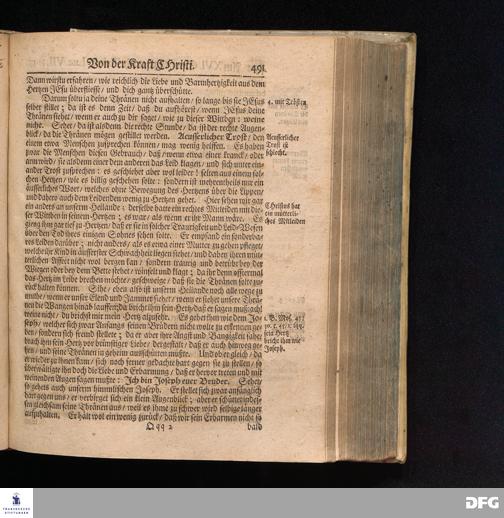 Von der Kraft CHristi. 491.
Dann würstu erfahren/ wie reichlich die Liebe und Barmhertzigkeit aus dem
Hertzen JEsu überfliesse/ und dich gantz überschütte.
Darum soltu ja deine Thränen nicht aufhalten/ so lange bis sie JEsus
selber stillet; da ist es denn Zeit/ daß du aufhörest/ wenn JEsus deine
Thränen siehet/ wenn er auch zu dir saget/ wie zu dieser Witwen: weine
nicht. Sehet/ da ist alsdenn die rechte Stunde/ da ist der rechte Augen-
blick/ da die Thränen mögen gestillet werden. Aeusserlicher Trost/ den
einem etwa Menschen zusprechen können/ mag wenig helffen. Es haben
zwar die Menschen diesen Gebrauch/ daß/ wenn etwa einer kranck/ oder
arm wird/ sie alsdenn einer dem anderen das Leid klagen/ und sich unter ein-
ander Trost zusprechen: es geschiehet aber wol leider! selten aus einem sol-
chen Hertzen/ wie es billig geschehen solte: sondern ist mehrentheils nur ein
äusserliches Wort/ welches ohne Bewegung des Hertzens über die Lippen/
und dahero auch dem Leidenden wenig zu Hertzen gehet. Hier sehen wir gar
ein anders an unserem Heilande: derselbe hatte ein rechtes Mitleiden mit die-
ser Witwen in seinem Hertzen; es war/ als wenn er ihr Mann wäre. Es
gieng ihm gar tief zu Hertzen/ daß er sie in solcher Traurigkeit und Leid-Wesen
über den Tod ihres einigen Sohnes sehen solte. Er empfand ein sonderba-
res Leiden darüber; nicht anders/ als es etwa einer Mutter zu gehen pfleget/
welche ihr Kind in äusserster Schwachheit liegen siehet/ und daher ihren müt-
terlichen Affect nicht wol bergen kan/ sondern traurig und betrübt bey der
Wiegen oder bey dem Bette stehet/ winselt und klagt; da ihr denn oftermal
das Hertz im Leibe brechen möchte/ geschweige/ daß sie die Thränen solte zu-
rück halten können. Sihe/ eben also ist unserm Heilande noch alle wege zu
muthe/ wenn er unser Elend und Jammer siehet/ wenn er siehet unsere Thrä-
nen die Wangen hinab lauffen/da bricht ihm sein Hertz/daß er sagen muß:ach!
weine nicht/ du brichst mir mein Hertz alzusehr. Es gehet ihm wie dem Jo-
seph/ welcher sich zwar Anfangs seinen Brüdern nicht wolte zu erkennen ge-
ben/ sondern sich fremd stellete; da er aber ihre Angst und Bangigkeit sahe/
brach ihm sein Hertz vor brünstiger Liebe/ dergestalt/ daß er auch hinweg ge-
hen/ und seine Thränen in geheim ausschütten muste. Und ob er gleich/ da
er wieder zu ihnen kam/ sich noch ferner gedachte hart gegen sie zu stellen/ so
überwältigte ihn doch die Liebe und Erbarmung/ daß er hervor treten und mit
weinenden Augen sagen muste: Ich bin Joseph euer Bruder. Sehet/
so gehets auch unserm himmlischen Joseph. Er stellet sich zwar anfänglich
hart gegen uns/ er verbirget sich ein klein Augenblick; aber er schüttet indes-
sen gleichsam seine Thränen aus/ weil es ihme zu schwer wird selbige länger
aufzuhalten. Er hält wol ein wenig zurück/ daß wir sein Erbarmen nicht so
Qqq 2 bald
4. mit Trösten.
Aeusserlicher
Trost ist
schlecht.
Christus hat
ein mütterli-
ches Mitleiden
1. B. Mos. 45/
sein Hertz
bricht ihm wie
Joseph.
FRANCKESCHE
STIFTUNGEN
DFG